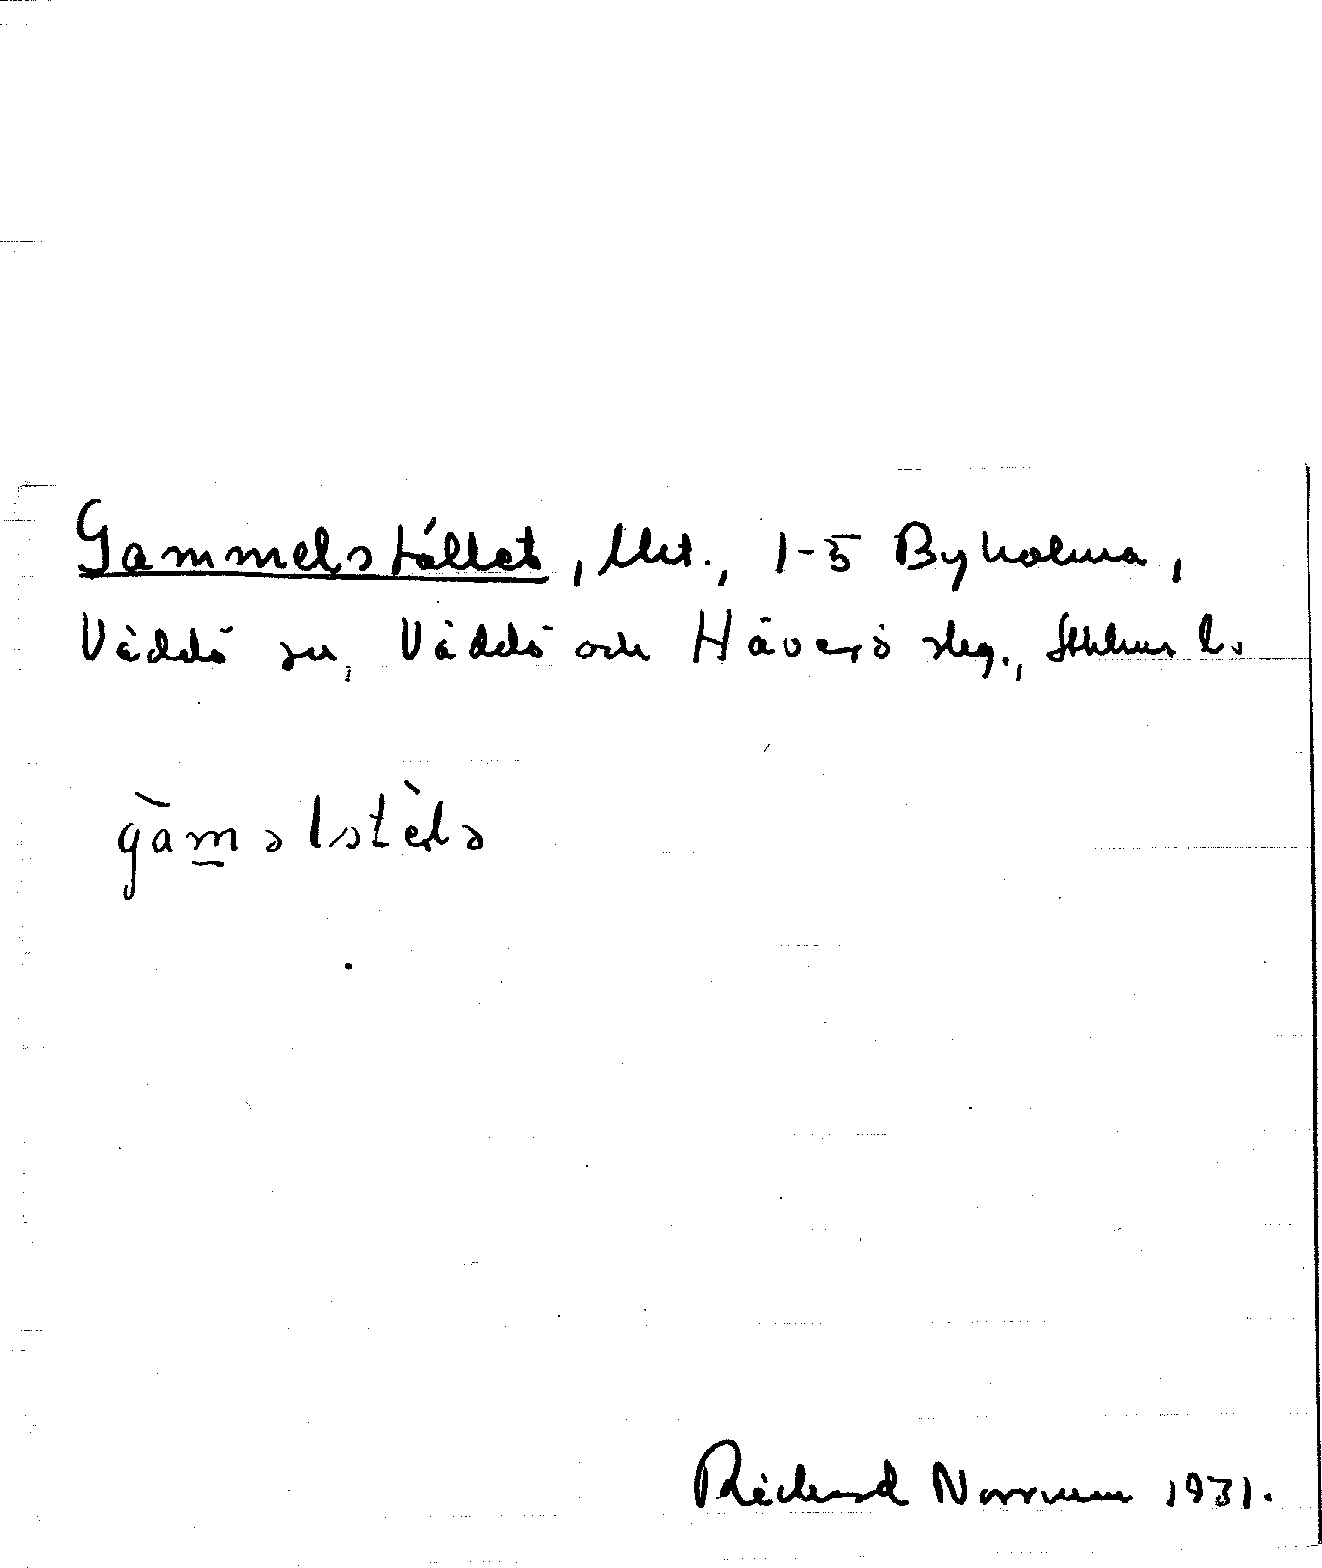 Gammelstället, Ukt., 1-5 Byholma,
Väddö sn, Väddö och Häverö skg., Sthlms l.
gàmǝlstèlǝ
Richard Norrman 1931.